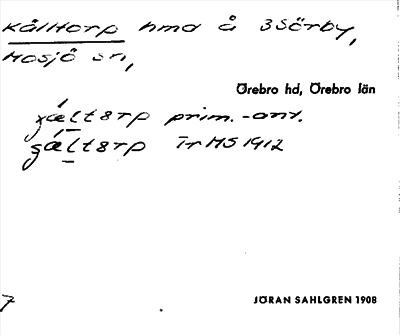 Kålltorp hmd å 3 Sörby,
Mosjö sn,
Örebro hd, Örebro län
ʒæ̀ltɵrp prim.-ant.
ʒæ̀ltɵrp Tr MS 1912
JÖRAN SAHLGREN 1908
7